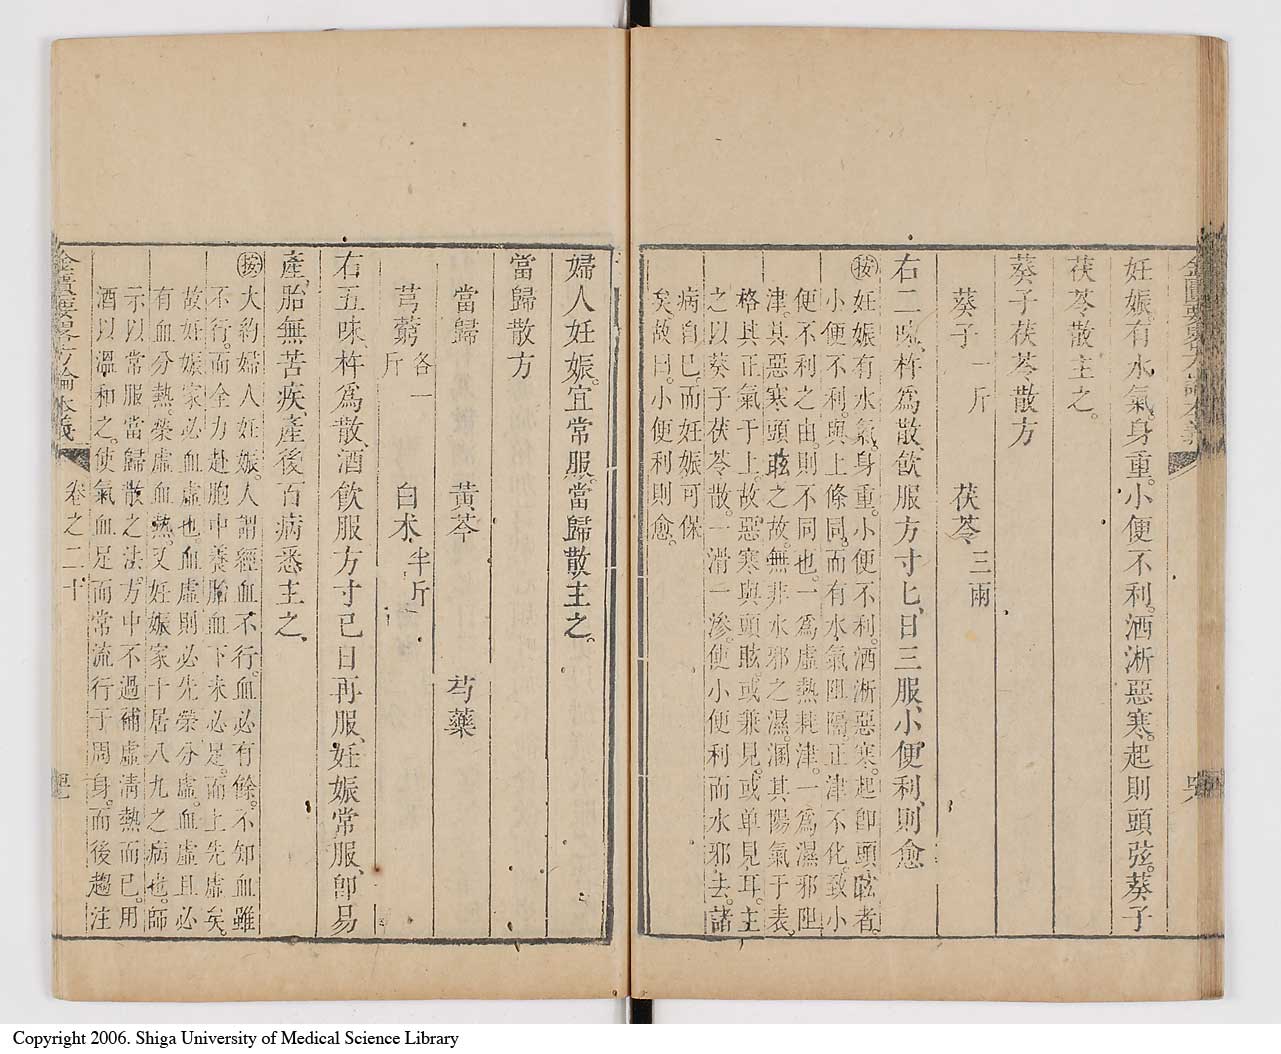 妊娠有水氣。身重。小便不利。洒淅惡寒。起則頭弦。葵子
茯苓散主之。
葵子茯苓散方
葵子 一斤 茯苓 三兩
右二味、杵爲散、飲服方寸匕、日三服、小便利、則愈
按妊娠有水氣。身重。小便不利。洒淅惡寒。起卽頭眩者。
小便不利。與上條同。而有水氣阻隔。正津不化。致小
便不利之由。則不同也。一爲虛熱耗津。一爲濕邪阻
津。其惡寒頭眩之故。無非水邪之濕。溷其陽氣于表。
格其正氣于上。故惡寒與頭眩。或兼見。或单見耳。主
之以葵子茯苓散。一滑一滲。使小便利而水邪去。諸
病自已。而妊娠可保
矣。故曰。小便利則愈。
婦人妊娠。宜常服。當歸散主之。
當歸散方
當歸 黃芩 芍藥
芎藭 各一斤 白术 半斤
右五味、杵爲散、酒飲服方寸已日再服、妊娠常服、卽易
產、胎無苦疾、產後百病悉主之、
按大約婦人妊娠。人謂經血不行。血必有餘。不知血雖
不行。而全力赴胞中養胎。血下來必足。而上先虛矣。
故妊娠家必血虛也。血虛則必先榮分虛。血虛且必
有血分熱。榮虛血熱。又妊娠家十居八九之病也。師
示以常服當歸散之法。方中不過補虛清熱而已。用
酒以溫和之。使氣血足而常流行于周身。而後趨注
金匱要畧方論本義 卷之二十
Copyright 2006. Shiga University of Medical Science Library